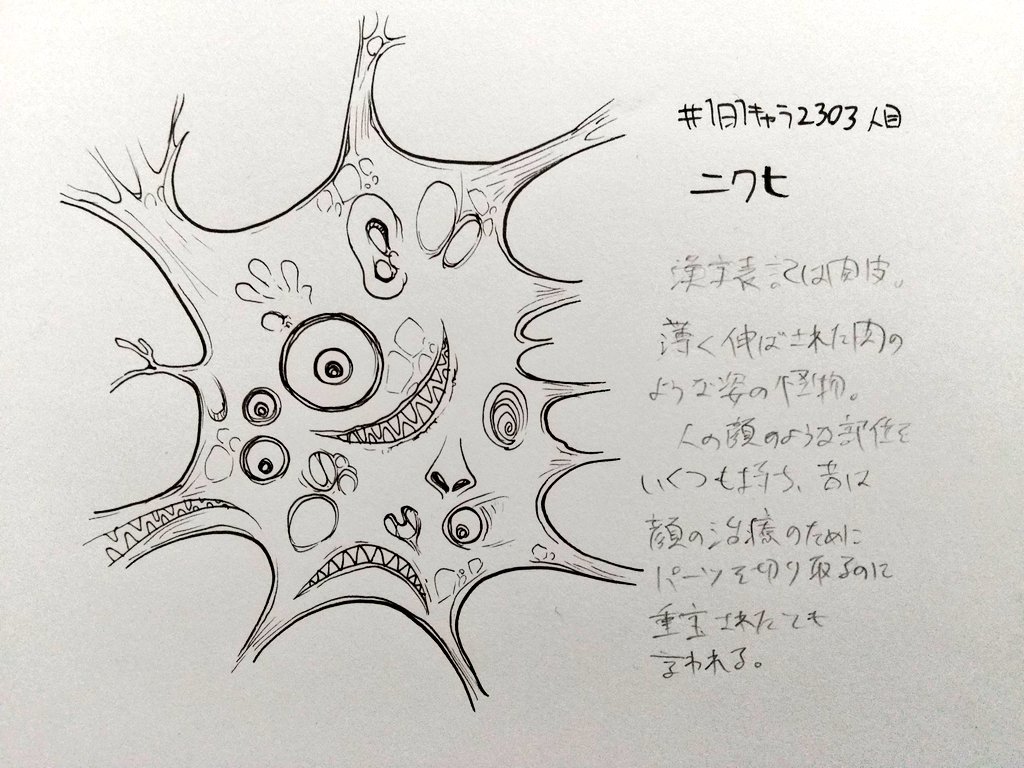 #1日1キャラ2303人目
ニクヒ
漢字表記は肉皮。
薄く伸ばされた肉の
ような姿の怪物。
人の顔のような部位を
いくつも持ち、昔は
顔の治療のために
パーツを切り取るのに
重宝されたとも
言われる。